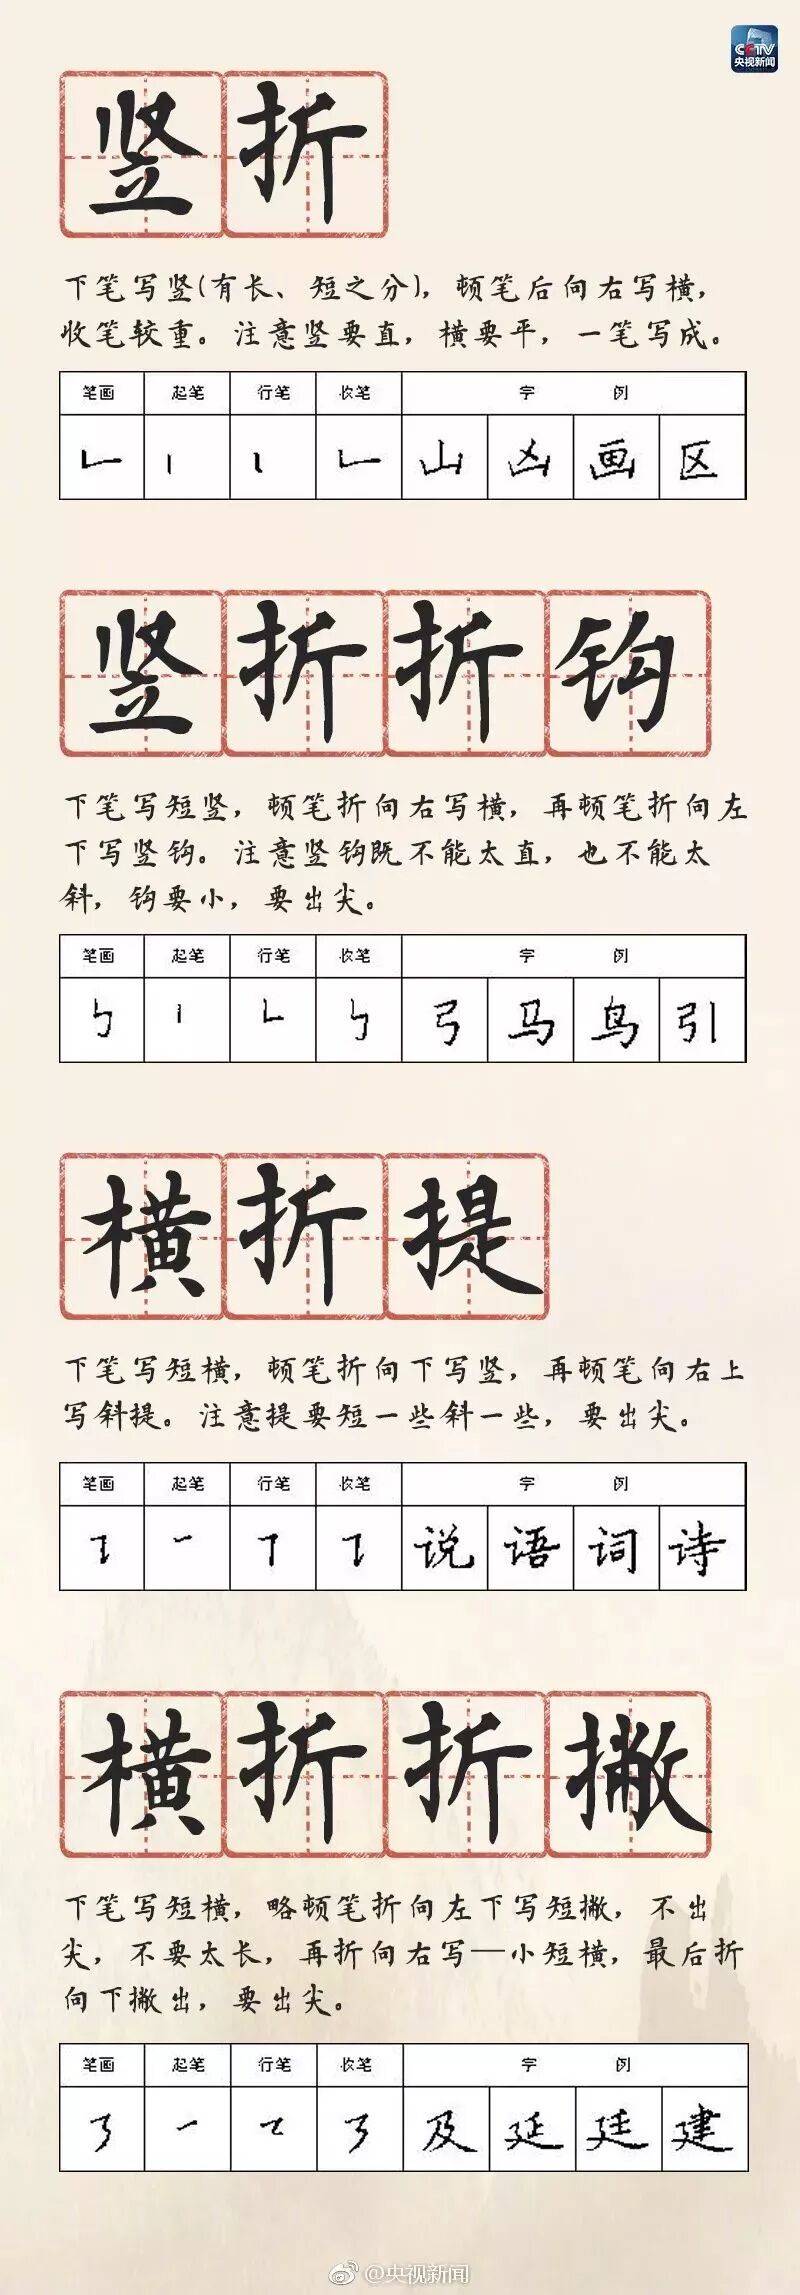 CCTV
央视新闻
竖折
下笔写竖(有长、短之分)，顿笔后向右写横，
收笔较重。注意竖要直，横要平，一笔写成。
笔画 起笔 行笔 收笔 字例
山 凶 画 区
竖折折钩
下笔写短竖，顿笔折向右写横，再顿笔折向左
下写竖钩。注意竖钩既不能太直，也不能太
斜，钩要小，要出尖。
笔画 起笔 行笔 收笔 字例
㇉ 丨 ㇗ ㇉ 弓 马 鸟 引
横折提
下笔写短横，顿笔折向下写竖，再顿笔向右上
写斜提。注意提要短一些斜一些，要出尖。
笔画 起笔 行笔 收笔 字例
说 语 词 诗
横折折撇
下笔写短横，略顿笔折向左下写短撇，不出
尖，不要太长，再折向右写一小短横，最后折
向下撇出，要出尖。
笔画 起笔 行笔 收笔 字例
及 延 廷 建
@央视新闻